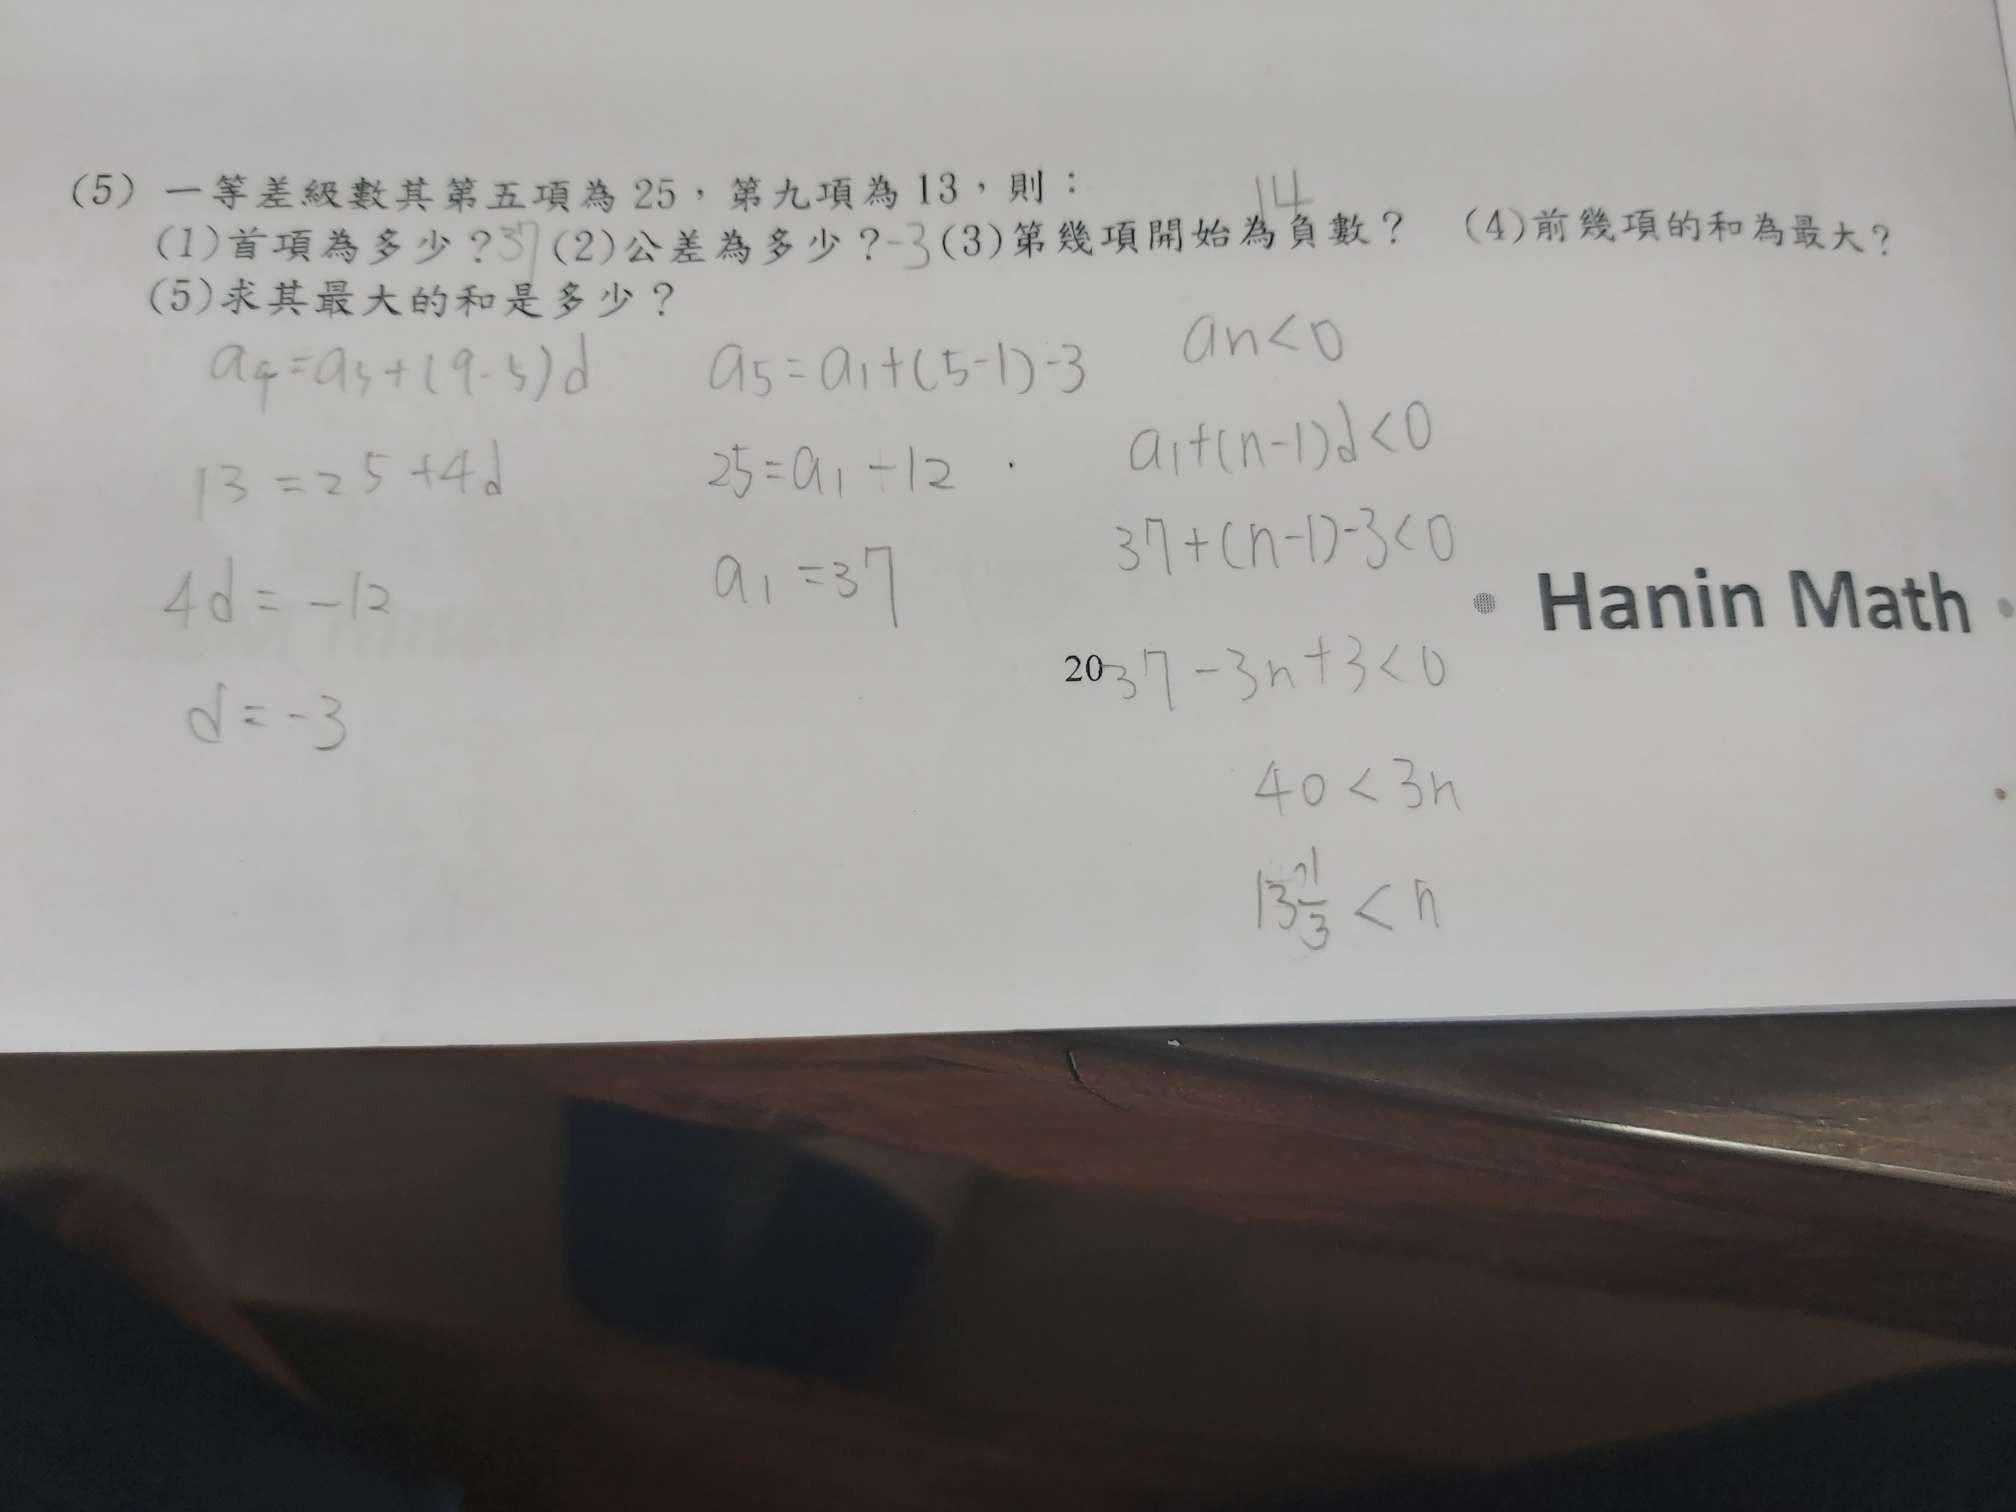 (5) 一等差級數其第五項為 25，第九項為 13，則：
14
(1)首項為多少？37 (2)公差為多少？-3 (3)第幾項開始為負數？ (4)前幾項的和為最大？
(5)求其最大的和是多少？
a9=a5+(9-5)d
13=25+4d
4d=-12
d=-3
a5=a1+(5-1)-3
25=a1-12
a1=37
an<0
a1+(n-1)d<0
37+(n-1)-3<0
37-3n+3<0
40<3n
13 1/3<n
Hanin Math
20